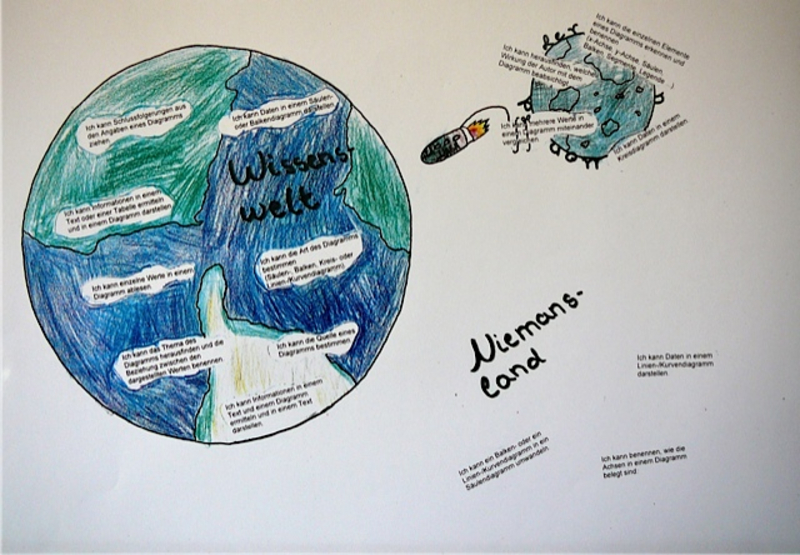 Ich kann Schlussfolgerungen aus
den Angaben eines Diagramms
ziehen.
Ich kann Daten in einem Säulen-
oder Balkendiagramm darstellen.
Wissens-
welt
Ich kann Informationen in einem
Text oder einer Tabelle ermitteln
und in einem Diagramm darstellen
Ich kann die Art des Diagramms
bestimmen
(Säulen-, Balken, Kreis- oder
Linien-/Kurvendiagramm)
Ich kann einzelne Werte in einem
Diagramm ablesen.
Ich kann das Thema des
Diagramms herausfinden und die
Beziehung zwischen den
dargestellten Werten benennen.
Ich kann die Quelle eines
Diagramms bestimmen.
Ich kann Informationen in einem
Text und einem Diagramm
ermitteln und in einem Text
darstellen.
der
Ich kann die einzelnen Elemente
eines Diagramms erkennen und
benennen
(x-Achse, y-Achse, Säulen,
Balken, Segmente, Legende ...)
Ich kann herausfinden, welche
Wirkung der Autor mit dem
Diagramm beabsichtigt
mehrere Werte in
einem Diagramm miteinander
vergleichen
Ich kann Daten in einem
Kreisdiagramm darstellen.
Niemans-
land
Ich kann Daten in einem
Linien-/Kurvendiagramm
darstellen.
Ich kann ein Balken- oder ein
Linien-/Kurvendiagramm in ein
Säulendiagramm umwandeln
Ich kann benennen, wie die
Achsen in einem Diagramm
belegt sind